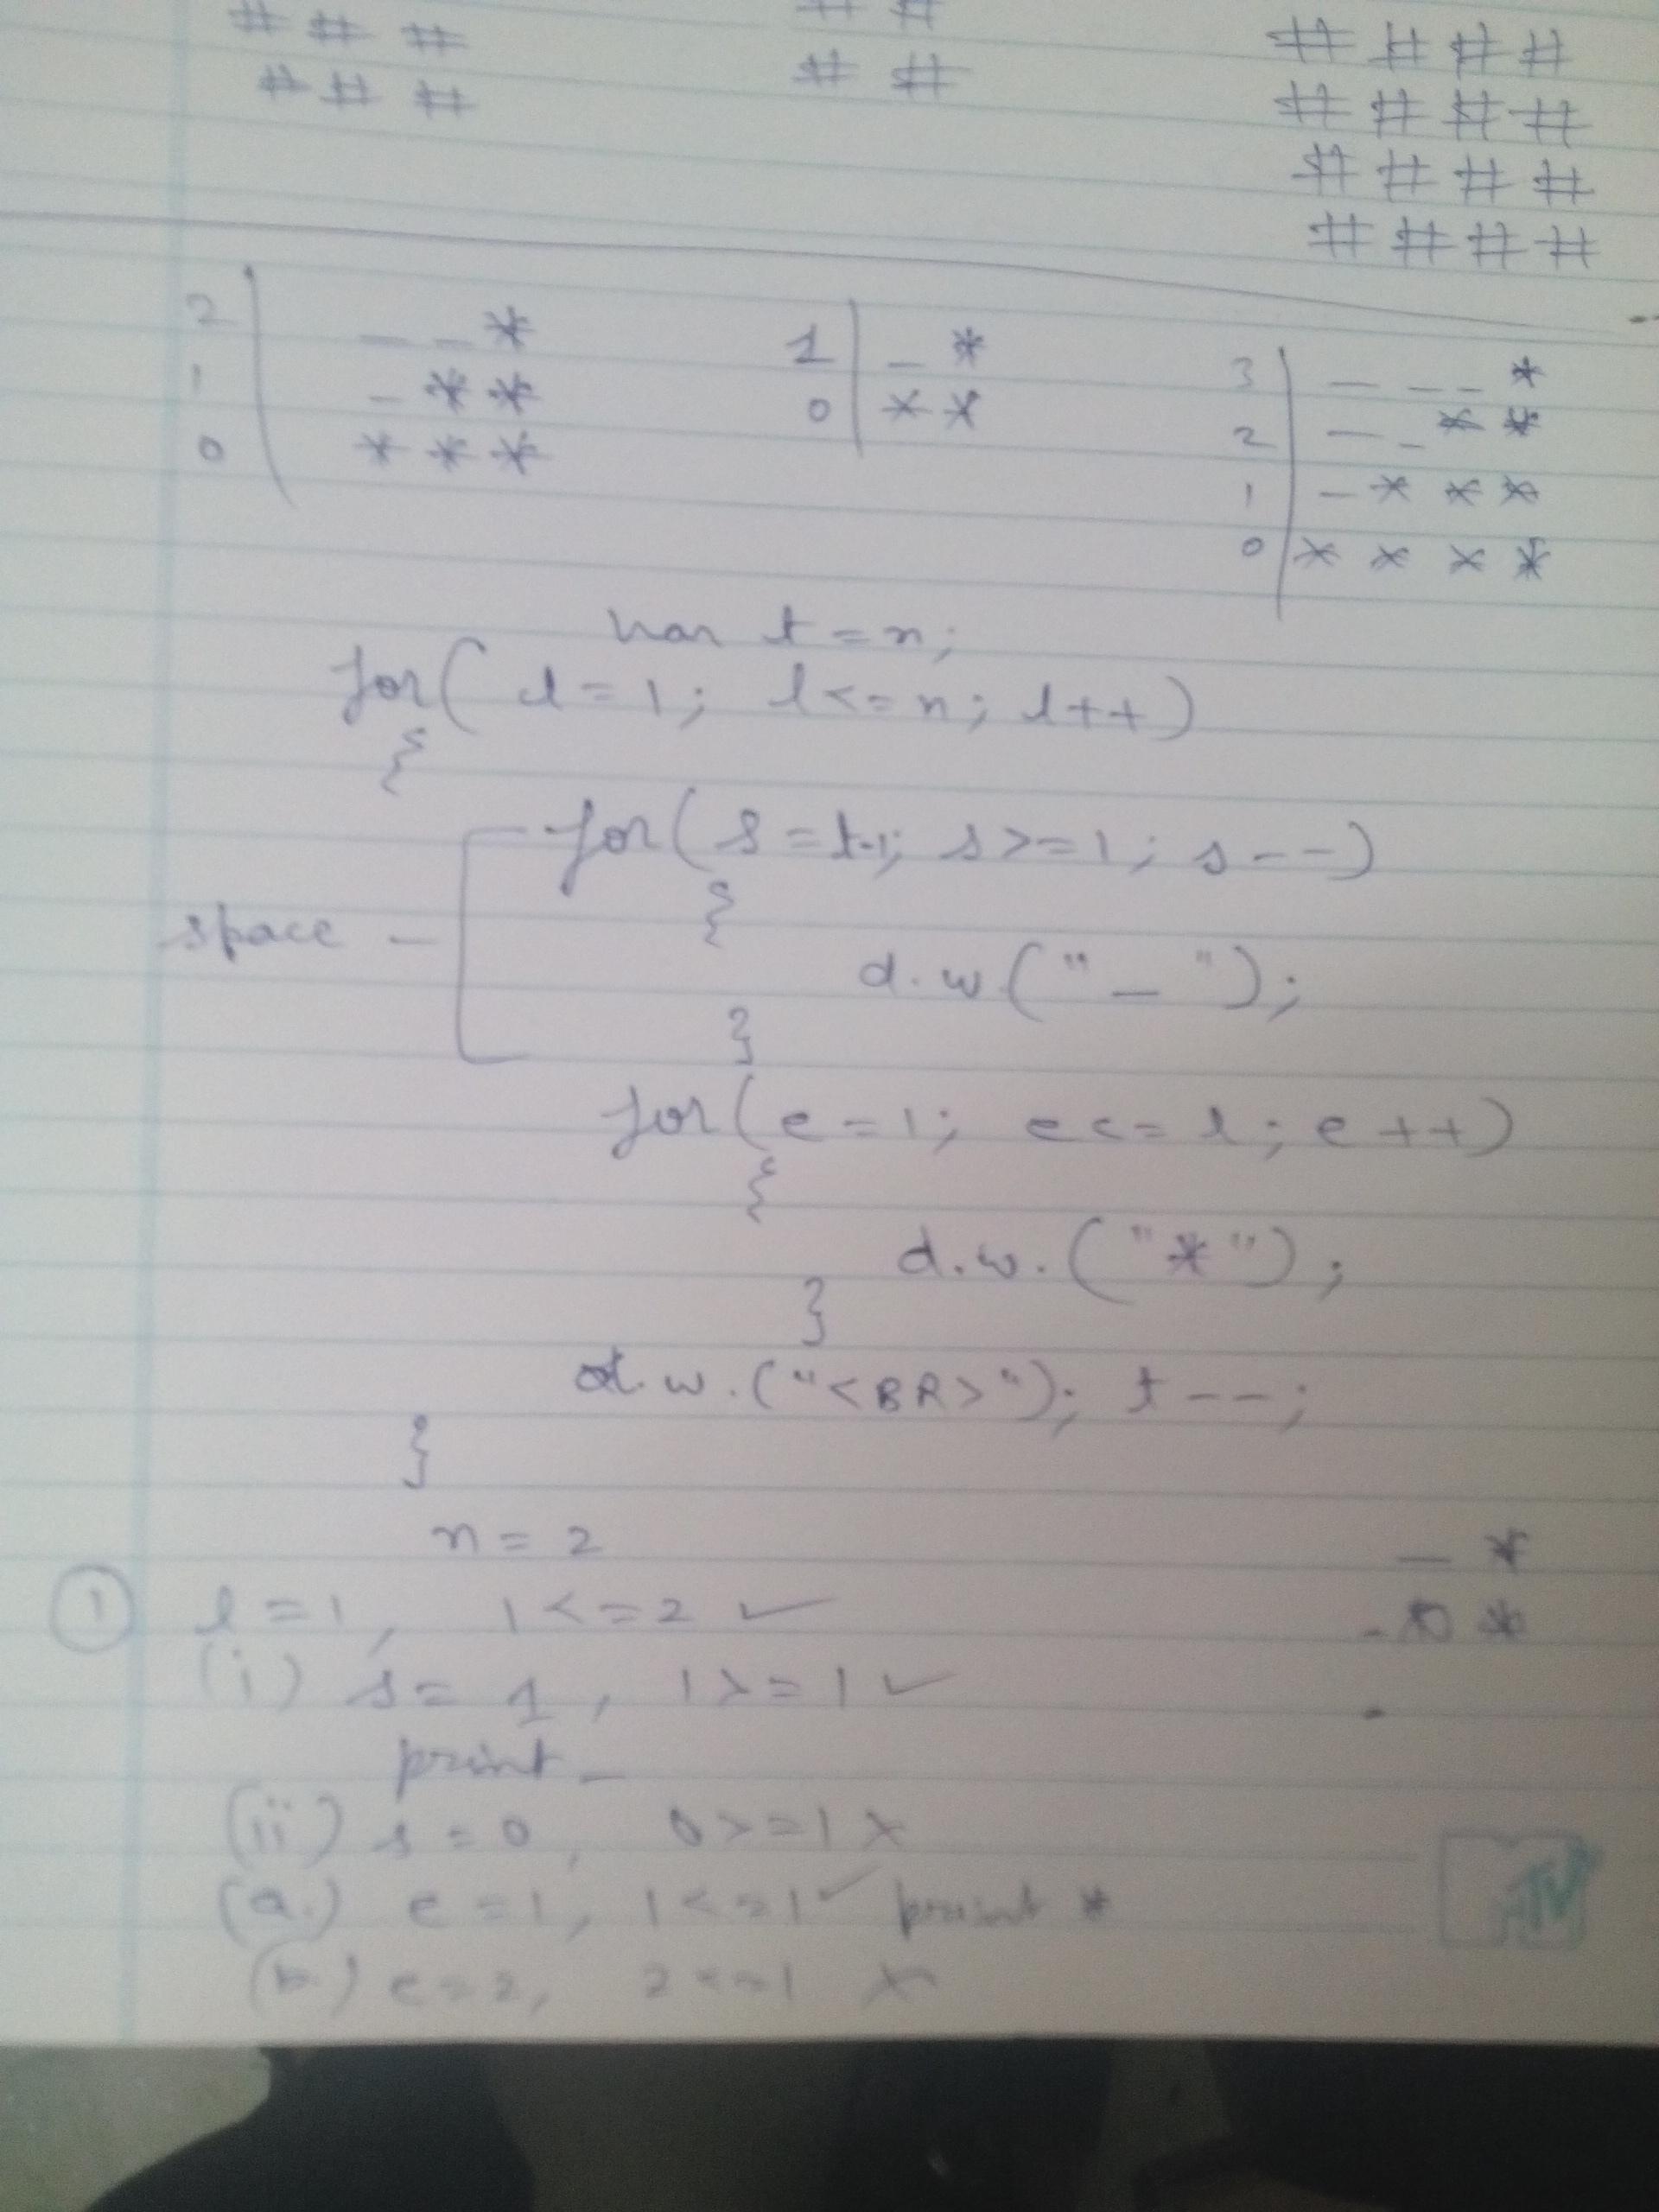 # # # # # # # # #
# # # # # # # # #
# # # #
# # # #
2 _ _ * 1 _ * 3 _ _ _ *
1 _ * * 0 * * 2 _ _ * *
0 * * * 1 _ * * *
0 * * * *
var t = n;
for( l = 1; l <= n; l++)
{
for( s = t-1; s >= 1; s--)
{
space - d.w(" _ ");
}
for( e = 1; e <= l; e++)
{
d.w.("*");
}
d.w.("<BR>"); t--;
}
n = 2 _ *
① l = 1, 1 <= 2 ✓ *
(i) s = 1, 1 >= 1 ✓
print _
(ii) s = 0, 0 >= 1 ×
(a.) e = 1, 1 <= 1 ✓ print *
(b.) e = 2, 2 <= 1 ×